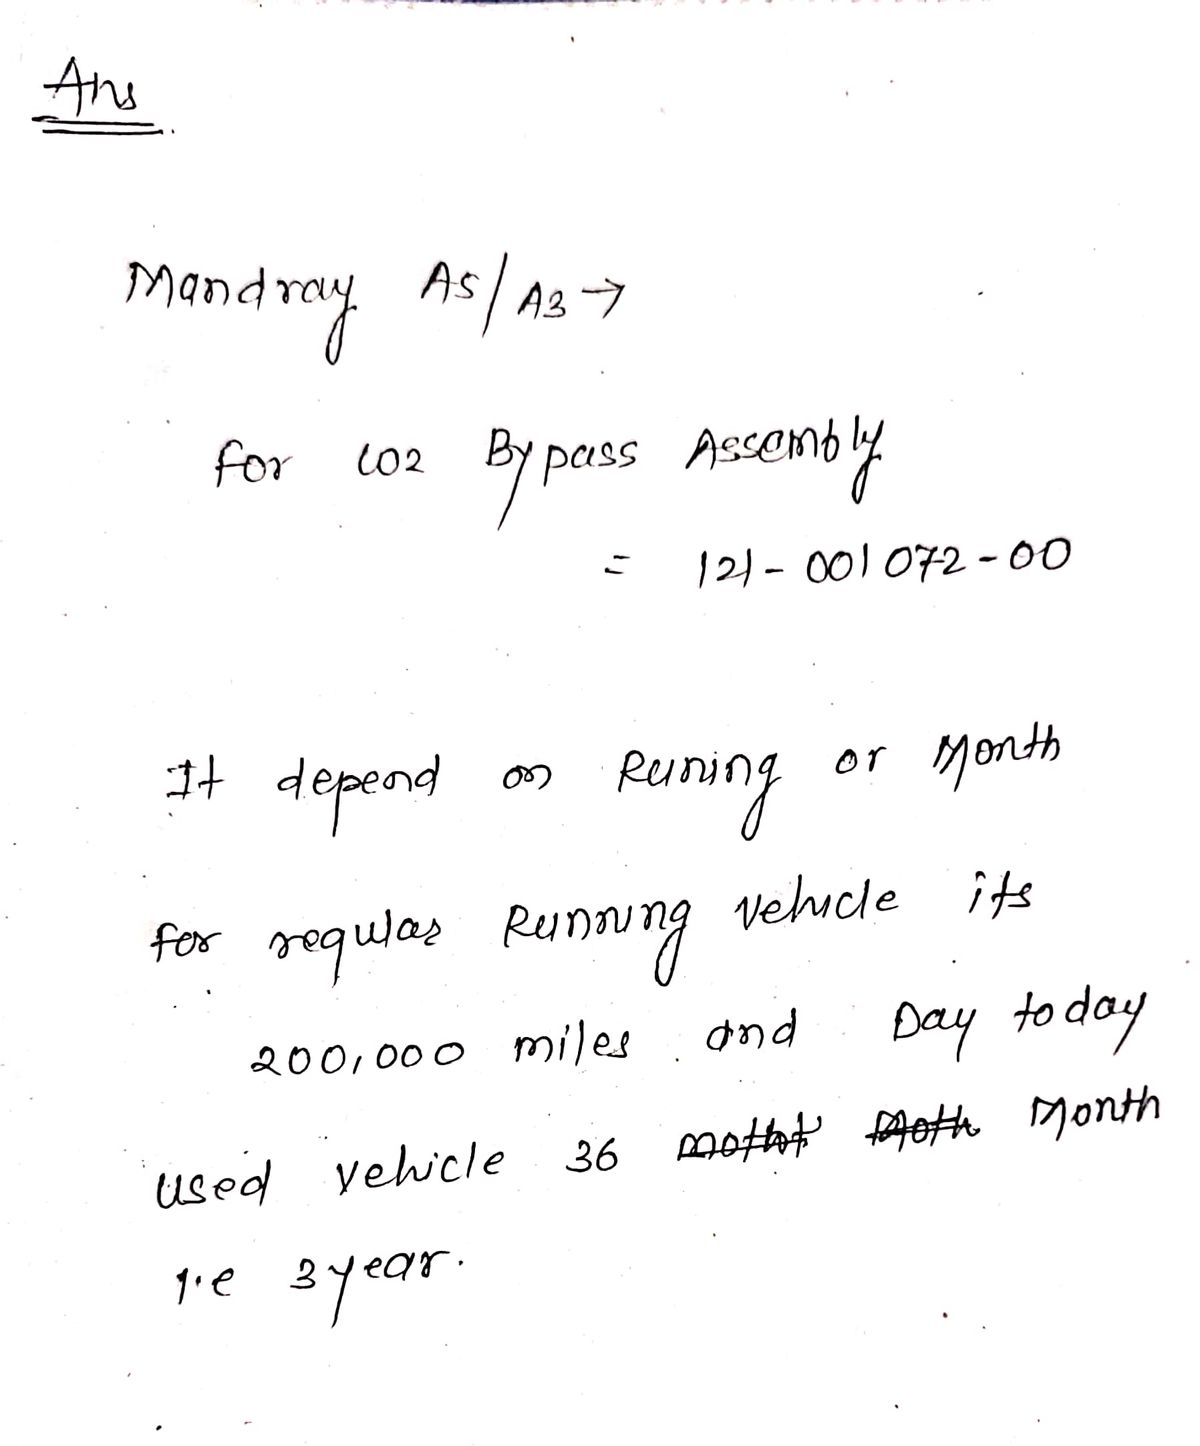 Ans
Mandray A5/A3 →
for CO2 Bypass Assembly
= 121-001072-00
It depend on Runing or Month
for regular Running vehicle its
200,000 miles and Day today
used vehicle 36 Month
i.e 3 year.